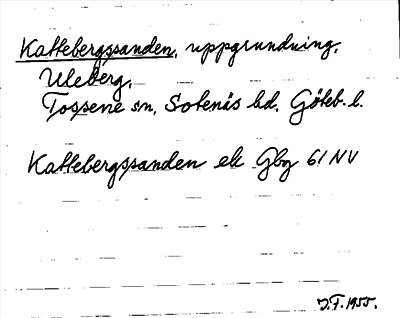 Kattebergssanden, uppgrundning,
Uleberg,
Tossene sn, Sotenäs hd, Göteb. l.
Kattebergssanden ek Gbg 61 NV
J.F. 1955.